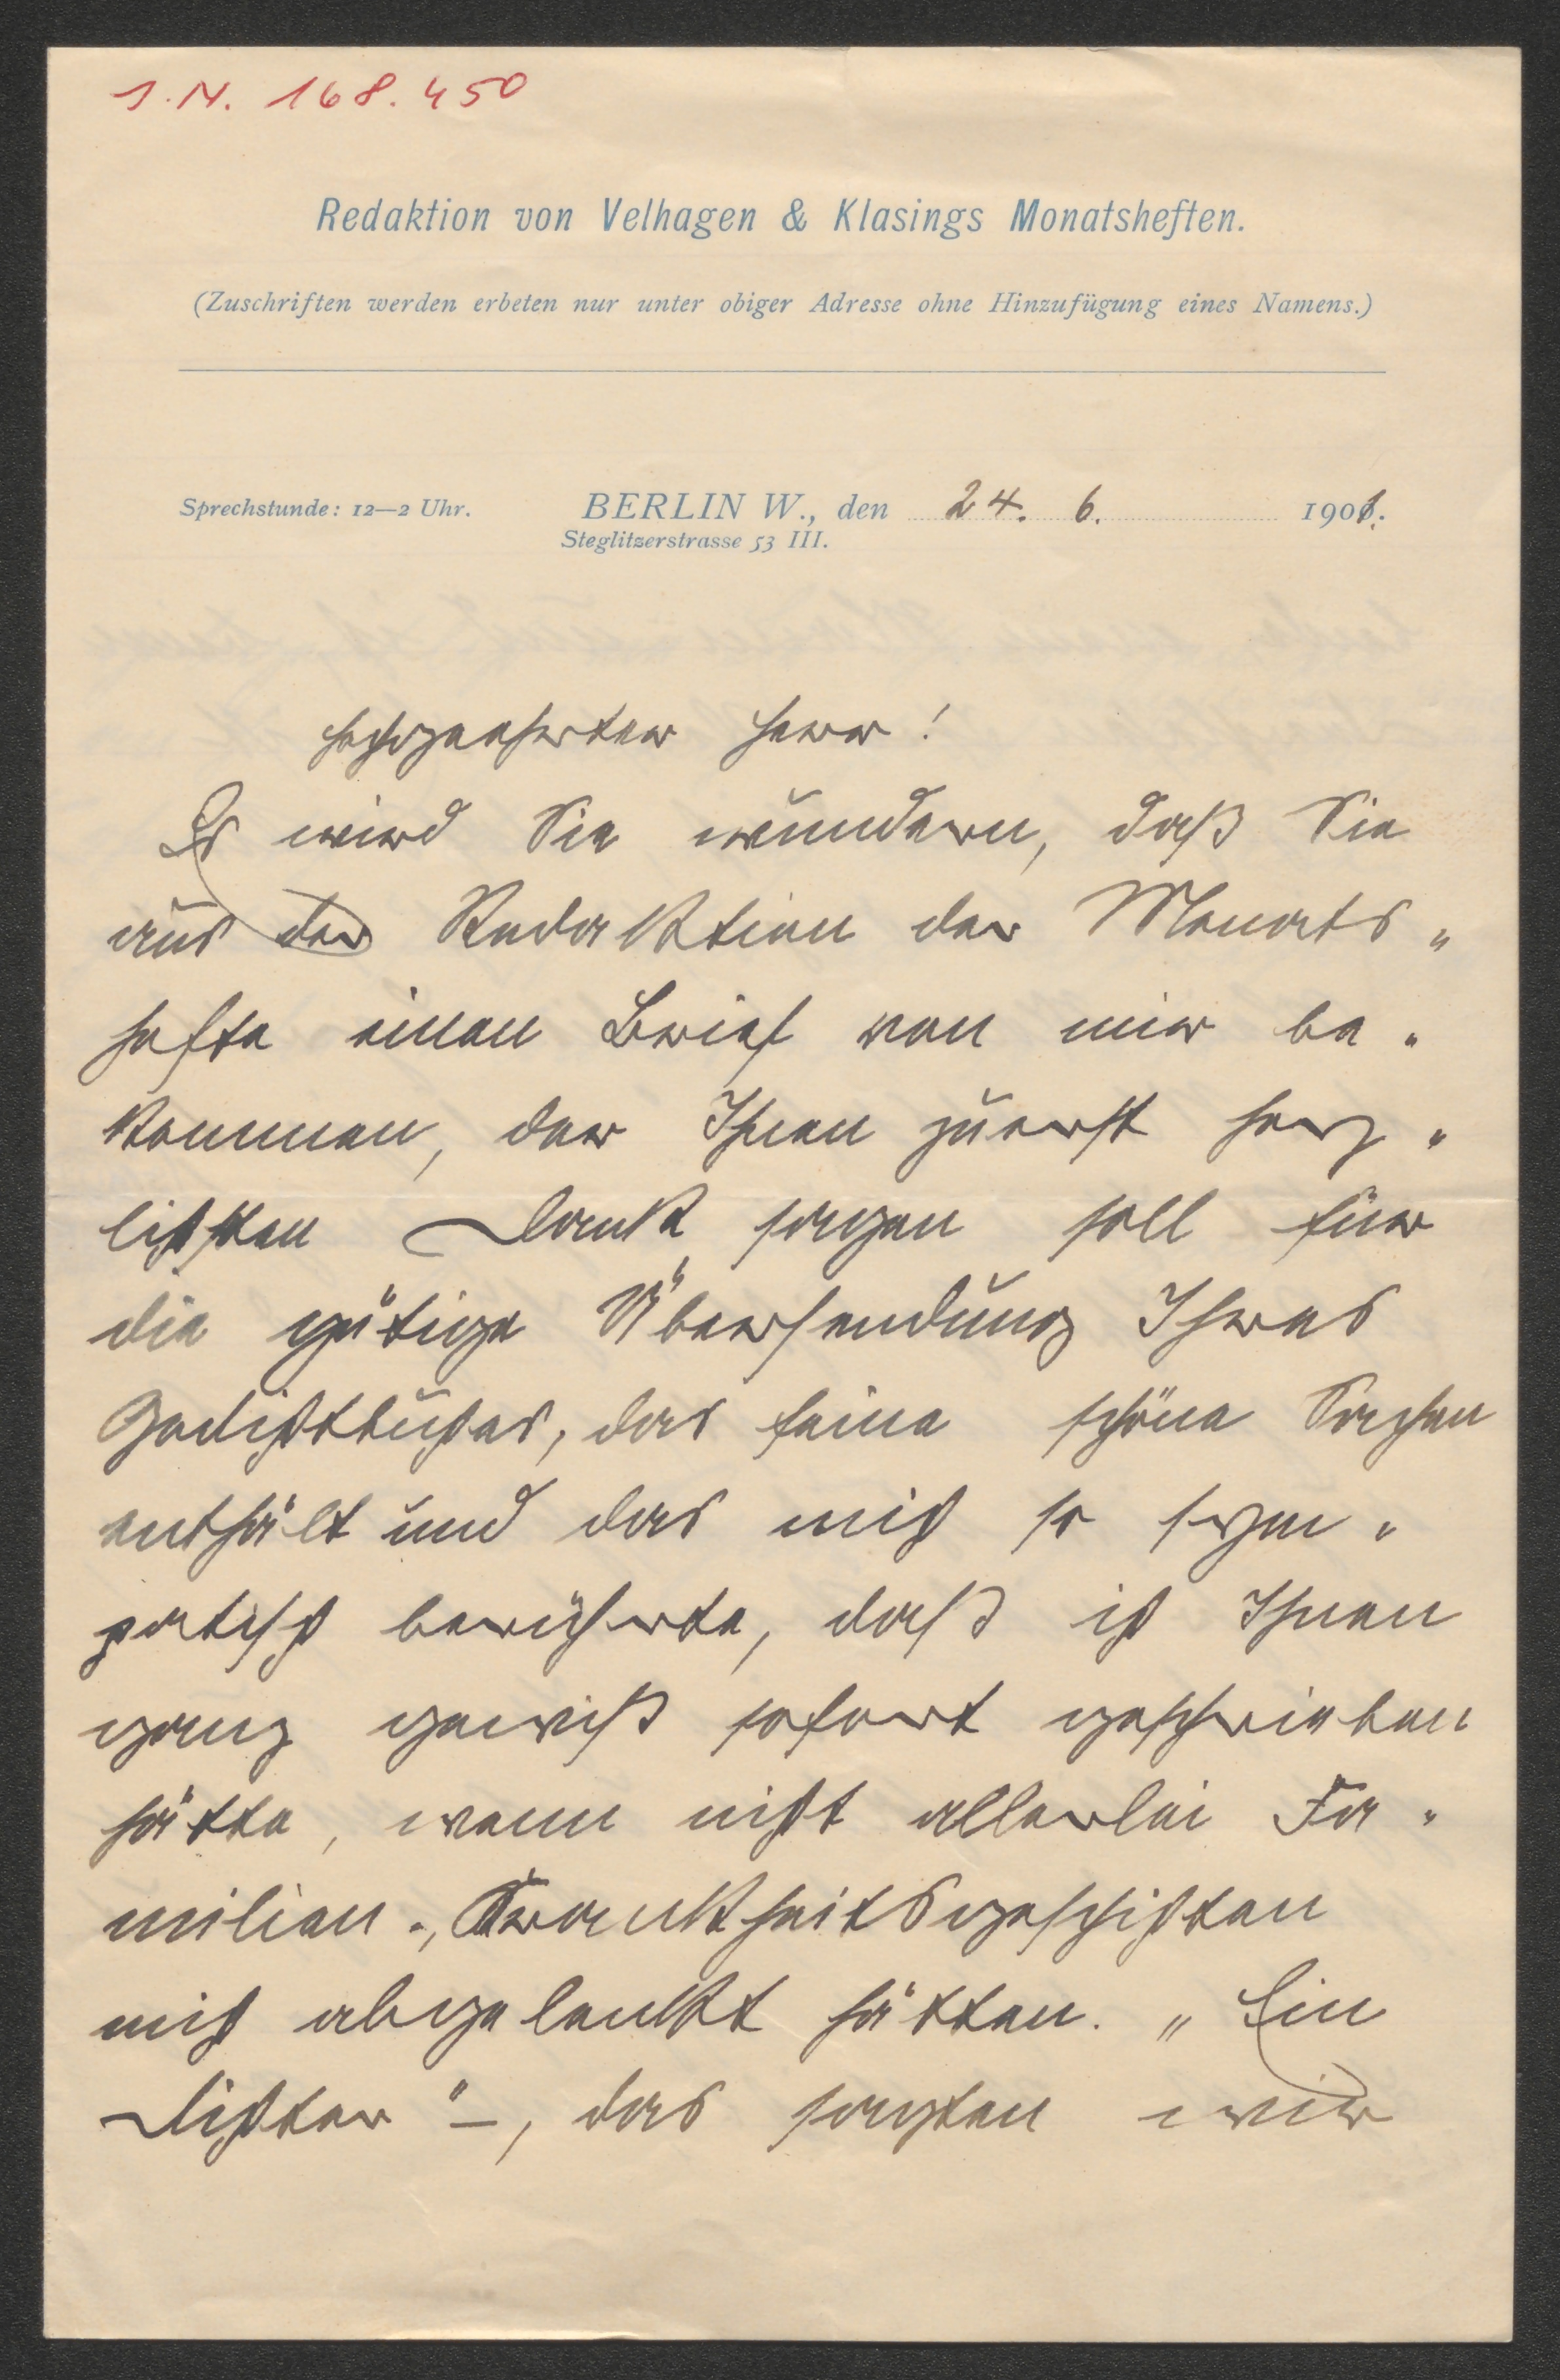 J.N. 168.450
Redaktion von Velhagen & Klasings Monatsheften.
(Zuschriften werden erbeten nur unter obiger Adresse ohne Hinzufügung eines Namens.)
Sprechstunde: 12—2 Uhr.
BERLIN W., den 24. 6. 1901.
Steglitzerstrasse 53 III.
Hochgeehrter Herr!
Es wird Sie wundern, daß Sie
aus der Redaktion der Monats„
hefte einen Brief von mir be„
kommen, der Ihnen zuerst herz„
lichsten Dank sagen soll für
die gütige Übersendung Ihres
Gedichtbuches, das feine schöne Sachen
enthält und das mich so sym„
patisch berührte, daß ich Ihnen
ganz gewiß sofort geschrieben
hätte, wenn nicht allerlei Fa„
milien-, Krankheitsgeschichten
mich abgelenkt hätten. „Ein
Dichter“ –, das sagten wir